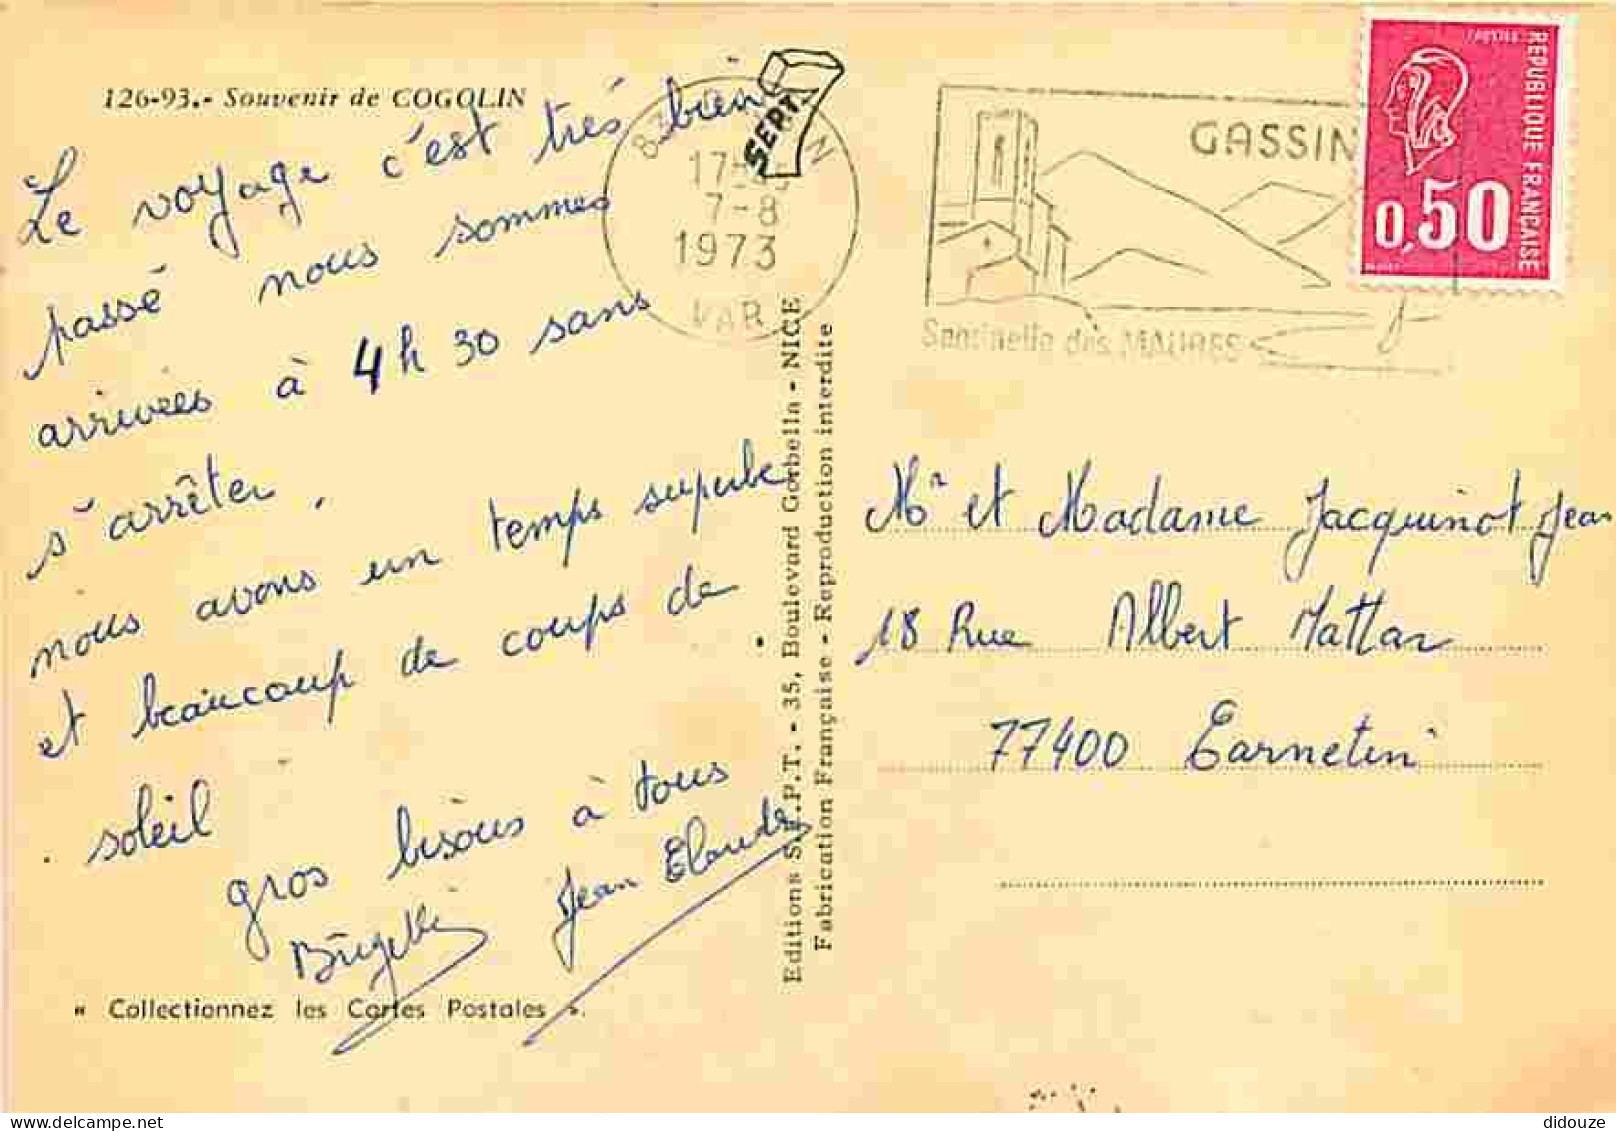 126-93.- Souvenir de COGOLIN
Le voyage c'est très bien
passé nous sommes
arrivées à 4h 30 sans
s'arrêter.
nous avons un temps superbe
et beaucoup de coups de
soleil
gros bisous à tous
Jean Claude
« Collectionnez les Cartes Postales ».
Editions S.E.P.T. - 35, Boulevard Gorbella - NICE
Fabrication Française - Reproduction interdite
SEPT
83
17
7-8
1973
VAR
GASSIN
Sentinelle des MAURES
REPUBLIQUE FRANÇAISE
0,50
Mr et Madame Jacquinot Jean
18 Rue Albert Mattar
77400 Carnetin
didouze